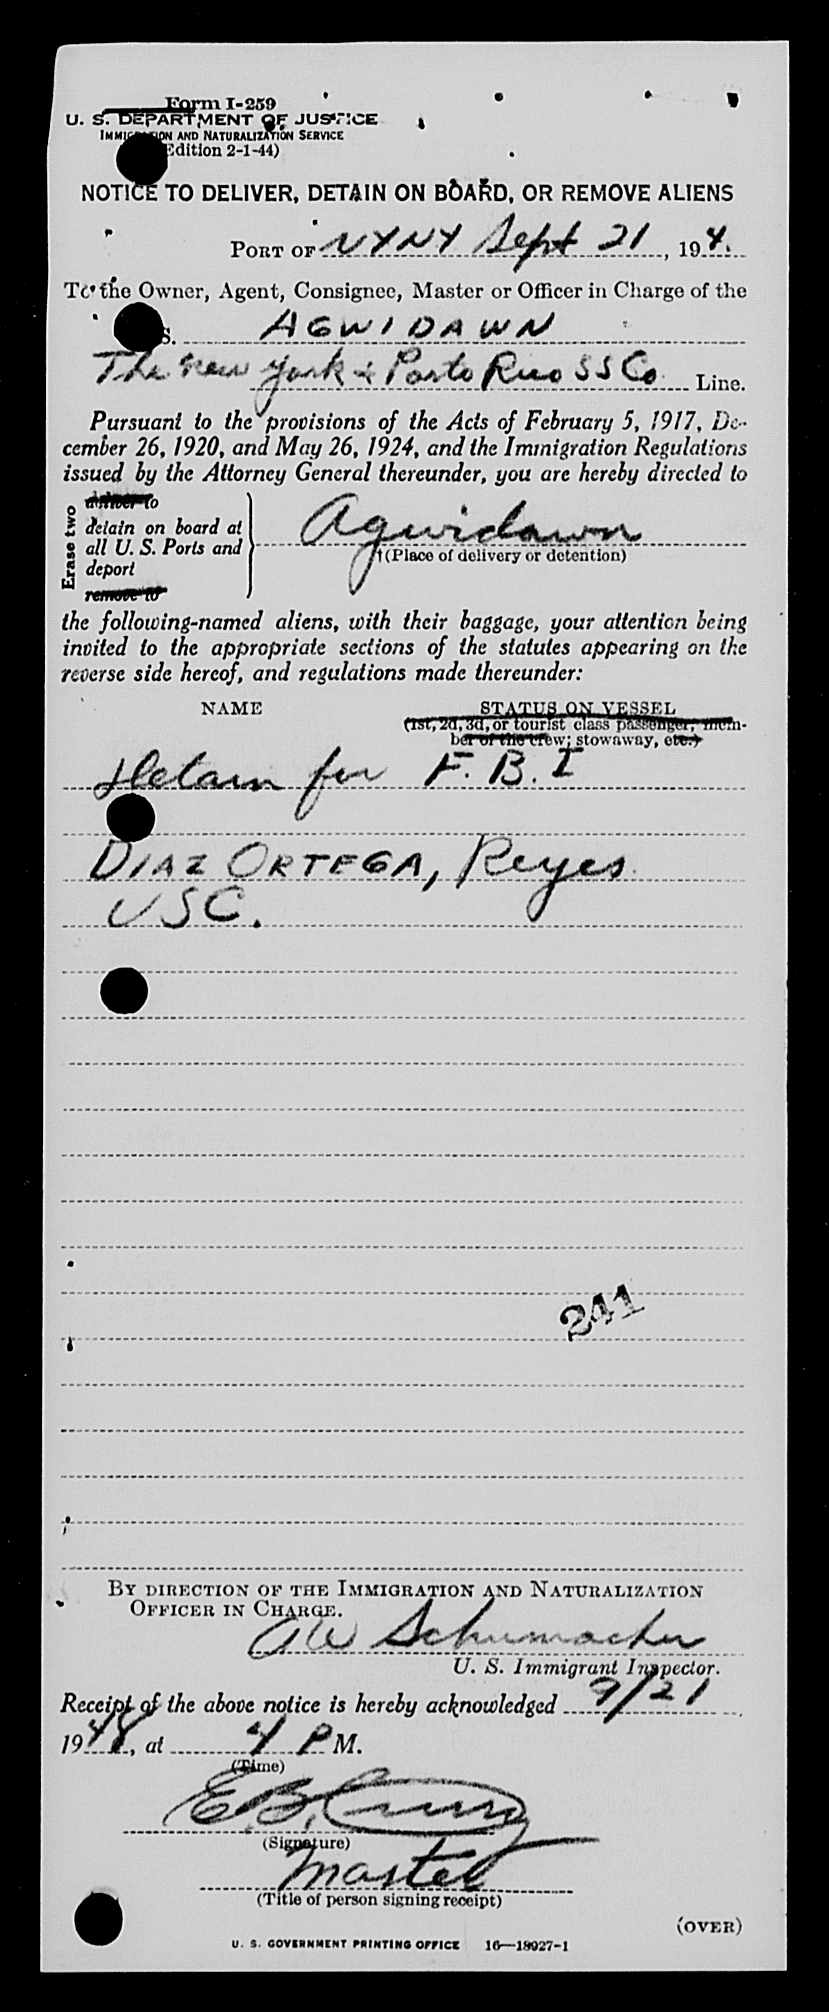 Form I-259
U. S. DEPARTMENT OF JUSTICE
IMMIGRATION AND NATURALIZATION SERVICE
Edition 2-1-44)
NOTICE TO DELIVER, DETAIN ON BOARD, OR REMOVE ALIENS
PORT OF NYNY Sept 21, 194.
To the Owner, Agent, Consignee, Master or Officer in Charge of the
S. AGWIDAWN
The New York & Porto Rico SS Co. Line.
Pursuant to the provisions of the Acts of February 5, 1917, De-
cember 26, 1920, and May 26, 1924, and the Immigration Regulations
issued by the Attorney General thereunder, you are hereby directed to
Erase two
deliver to
detain on board at
all U. S. Ports and
deport
remove to
Agwidawn
†(Place of delivery or detention)
the following-named aliens, with their baggage, your attention being
invited to the appropriate sections of the statutes appearing on the
reverse side hereof, and regulations made thereunder:
NAME STATUS ON VESSEL
(1st, 2d, 3d, or tourist class passenger, mem-
ber of the crew; stowaway, etc.)
Detain for F.B.I
DIAZ ORTEGA, Reyes
USC.
241
BY DIRECTION OF THE IMMIGRATION AND NATURALIZATION
OFFICER IN CHARGE.
AW Schumacher
U. S. Immigrant Inspector.
Receipt of the above notice is hereby acknowledged 9/21
1948, at 4 P M.
(Time)
E.B. Curry
(Signature)
Master
(Title of person signing receipt)
(OVER)
U. S. GOVERNMENT PRINTING OFFICE 16—18927-1